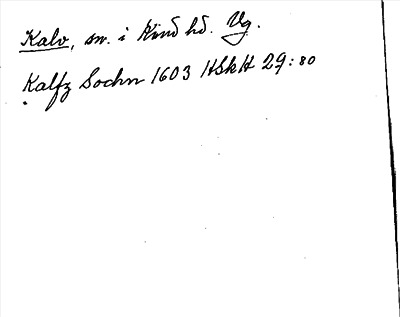 Kalv, sn. i Kind hd. Vg.
Kalfz Sochn 1603 HSkH 29:80